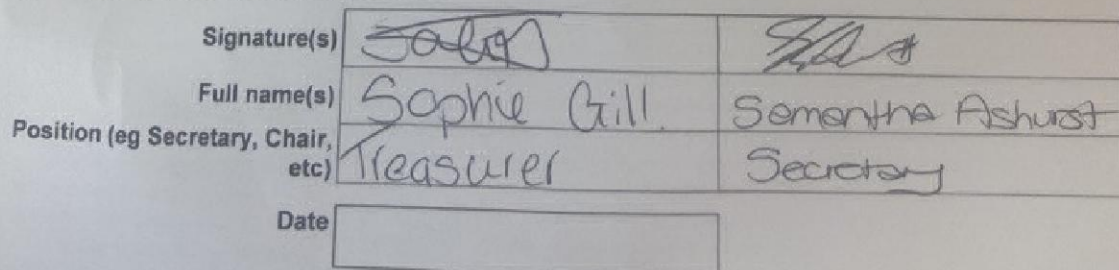 Signature(s)
Full name(s) Sophie Gill. Samantha Ashurst
Position (eg Secretary, Chair,
etc) Treasurer Secretary
Date